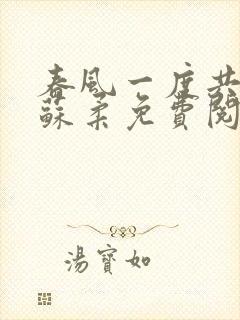 春風一度共
蘇柔免費閱
湯寶如